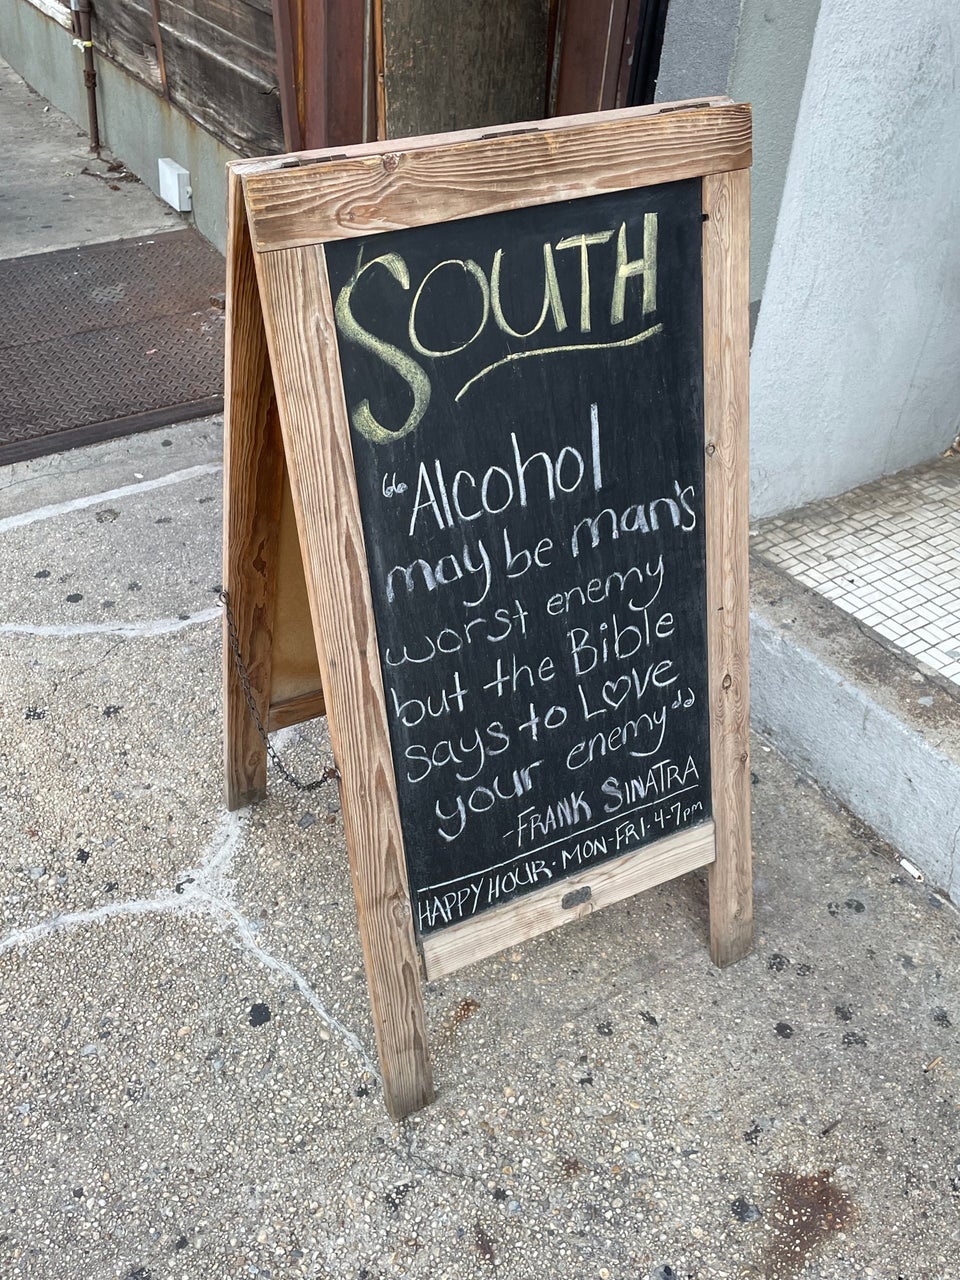 SOUTH
"Alcohol
may be man's
worst enemy
but the Bible
says to LOVE
your enemy"
-FRANK SINATRA
HAPPY HOUR · MON-FRI · 4-7pm